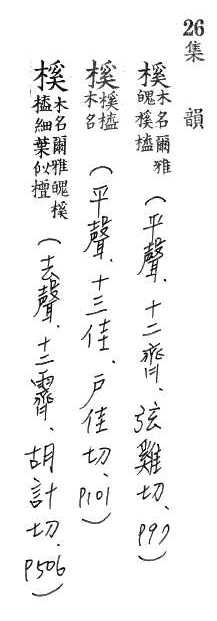 26
集韻
榽木名爾雅魄榽橀(平聲、十二齊、弦雞切、P97)
榽榽橀木名(平聲、十三佳、戶佳切、P101)
榽木名爾雅魄榽橀細葉似檀(去聲、十二霽、胡計切、P506)